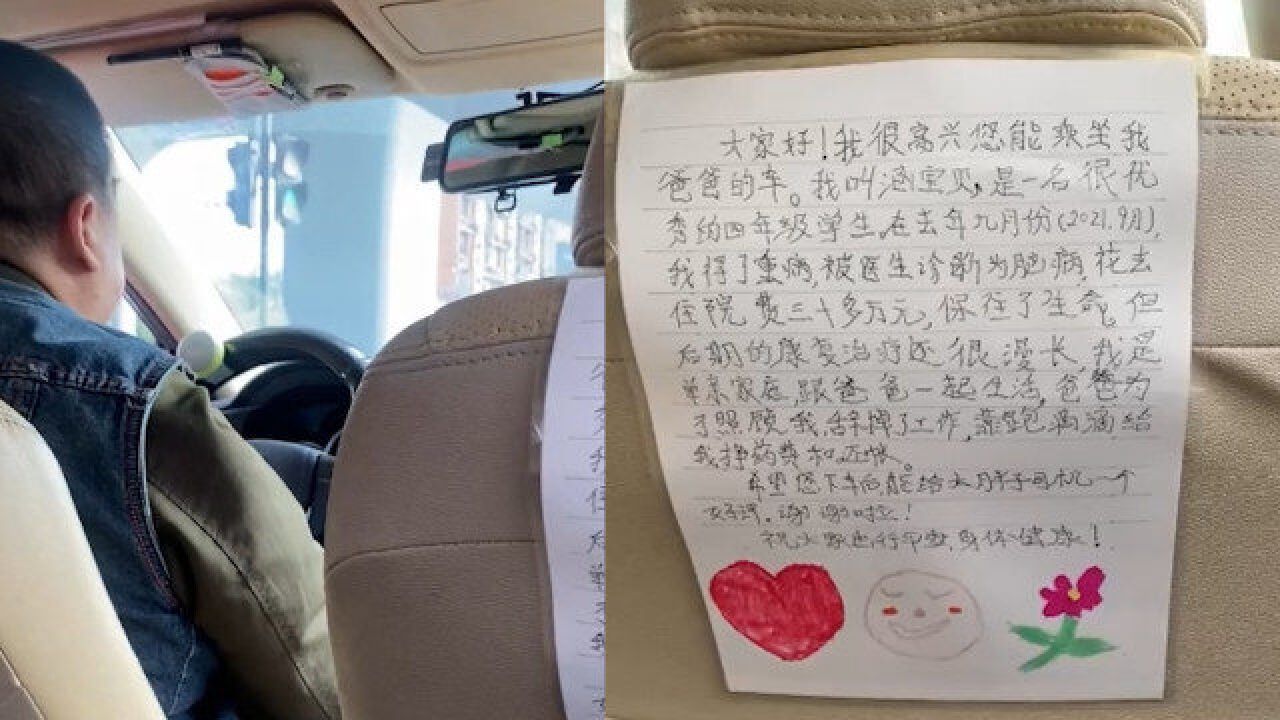 大家好!我很高兴您能乘坐我
爸爸的车。我叫涵宝贝,是一名很优
秀的四年级学生,在去年九月份(2021.9月),
我得了重病,被医生诊断为脑病,花去
住院费三十多万元,保住了生命。但
后期的康复治疗还很漫长,我是
单亲家庭,跟爸爸一起生活,爸爸为
了照顾我,辞掉了工作,靠跑滴滴给
我挣药费和还帐。
希望您下车后能给大胖子司机一个
好评。谢谢啦!
祝大家出行平安,身体健康!